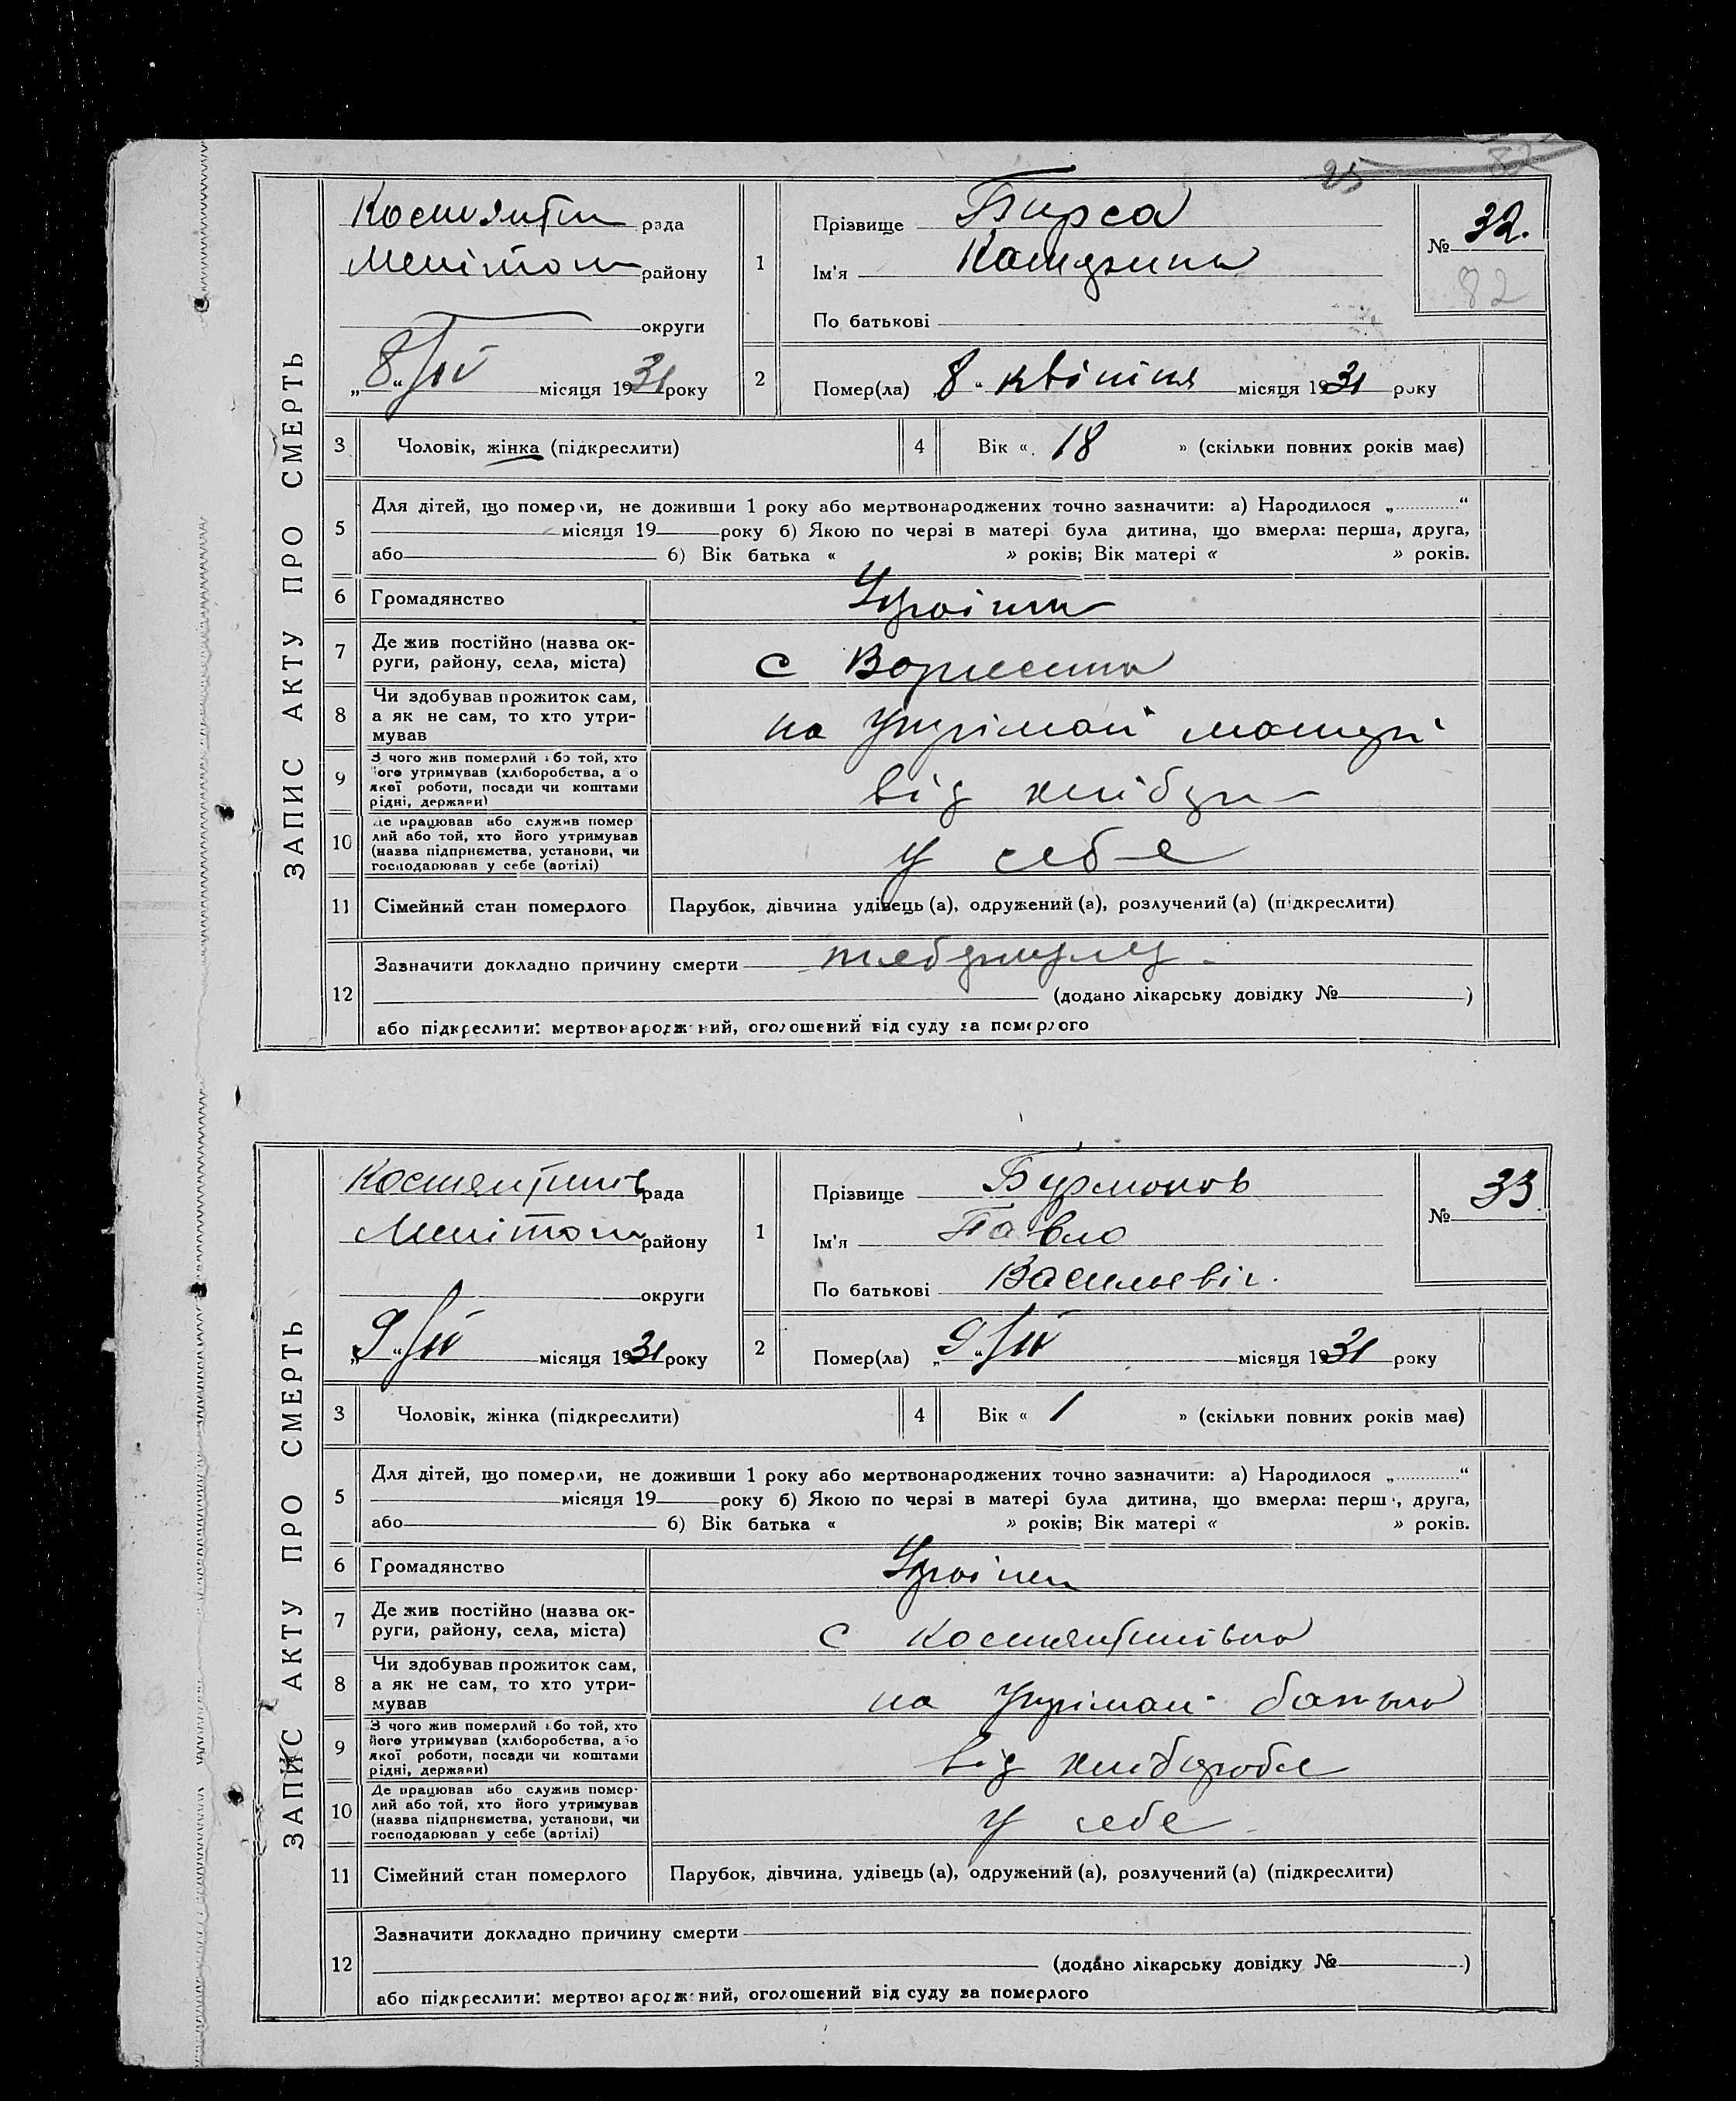 25 82
ЗАПИС АКТУ ПРО СМЕРТЬ
Костянтин рада
Меліноп району
округи
„8“/IV місяця 1931 року
1
Прізвище Бирса
Ім'я Катерина
По батькові
№ 32.
82
2
Помер(ла) „8“ квітня місяця 1931 року
3 Чоловік, жінка (підкреслити)
4 Вік « 18 » (скільки повних років має)
5 Для дітей, що померли, не доживши 1 року або мертвонароджених точно зазначити: а) Народилося „ “
місяця 19 року б) Якою по черзі в матері була дитина, що вмерла: перша, друга,
або б) Вік батька « » років; Вік матері « » років.
6 Громадянство Україн
7 Де жив постійно (назва ок-
руги, району, села, міста) с
8 Чи здобував прожиток сам,
а як не сам, то хто утри-
мував на утріман матері
9 З чого жив померлий або той, хто
його утримував (хліборобства, або
якої роботи, посади чи коштами
рідні, держави) від хлібор
10 Де працював або служив помер
лий або той, хто його утримував
(назва підприємства, установи, чи
господарював у себе (артілі) у себе
11 Сімейний стан померлого Парубок, дівчина удівець (а), одружений (а), розлучений (а) (підкреслити)
12 Зазначити докладно причину смерти
(додано лікарську довідку № )
або підкреслити: мертвонароджений, оголошений від суду за померлого
ЗАПИС АКТУ ПРО СМЕРТЬ
Костянтинів рада
Меліноп району
округи
„9“/IV місяця 1931 року
1
Прізвище Бурмоков
Ім'я Павло
По батькові Васильевіч.
№ 33.
2
Помер(ла) „9“/IV місяця 1931 року
3 Чоловік, жінка (підкреслити)
4 Вік « 1 » (скільки повних років має)
5 Для дітей, що померли, не доживши 1 року або мертвонароджених точно зазначити: а) Народилося „ “
місяця 19 року б) Якою по черзі в матері була дитина, що вмерла: перша, друга,
або б) Вік батька « » років; Вік матері « » років.
6 Громадянство Україн
7 Де жив постійно (назва ок-
руги, району, села, міста) с Костянтинівка
8 Чи здобував прожиток сам,
а як не сам, то хто утри-
мував на утріман батька
9 З чого жив померлий або той, хто
його утримував (хліборобства, або
якої роботи, посади чи коштами
рідні, держави) від хлібороба
10 Де працював або служив помер-
лий або той, хто його утримував
(назва підприємства, установи, чи
господарював у себе (артілі) у себе
11 Сімейний стан померлого Парубок, дівчина, удівець (а), одружений (а), розлучений (а) (підкреслити)
12 Зазначити докладно причину смерти
(додано лікарську довідку № )
або підкреслити: мертвонароджений, оголошений від суду за померлого